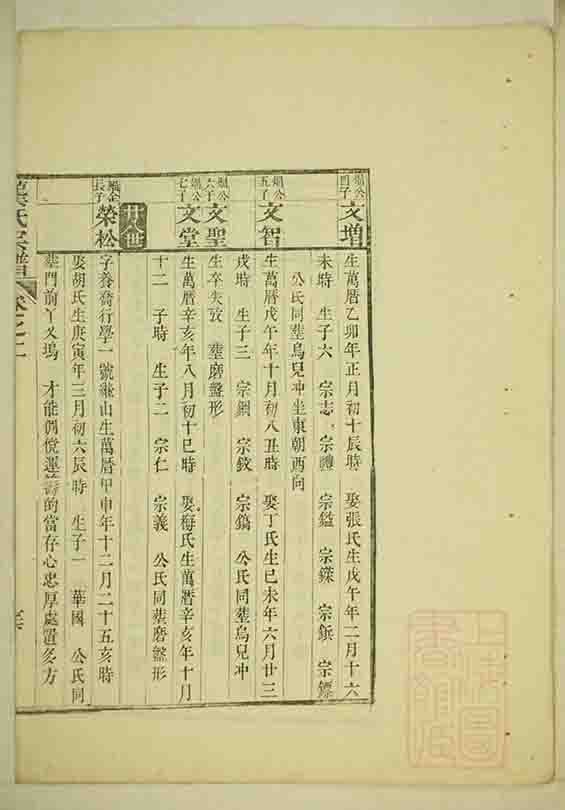 四子
文增
生萬曆乙卯年正月初十辰時 娶張氏生戊午年二月十六
未時 生子六 宗志 宗禮 宗鎰 宗鏷 宗鋠 宗鏢
公氏同塟烏兒冲坐東朝酉向
五子
文智
生萬曆戊午年十月初八丑時 娶丁氏生己未年六月廿三
戌時 生子三 宗鋼 宗鈫 宗鎬 公氏同塟烏兒冲
六子
文聖
生卒失攷 塟磨盤形
七子
文堂
生萬曆辛亥年八月初十巳時 娶梅氏生萬曆辛亥年十月
十二 子時 生子二 宗仁 宗義 公氏同塟磨盤形
廿八世
長子
榮松
字養喬行學一號 山生萬曆甲申年十二月二十五亥時
娶胡氏生庚寅年三月初六辰時 生子一 華國 公氏同
塟門前丫义塢 才能倜儻運籌的當存心忠厚處置多方
氏宗譜 卷之二
上海圖書館藏